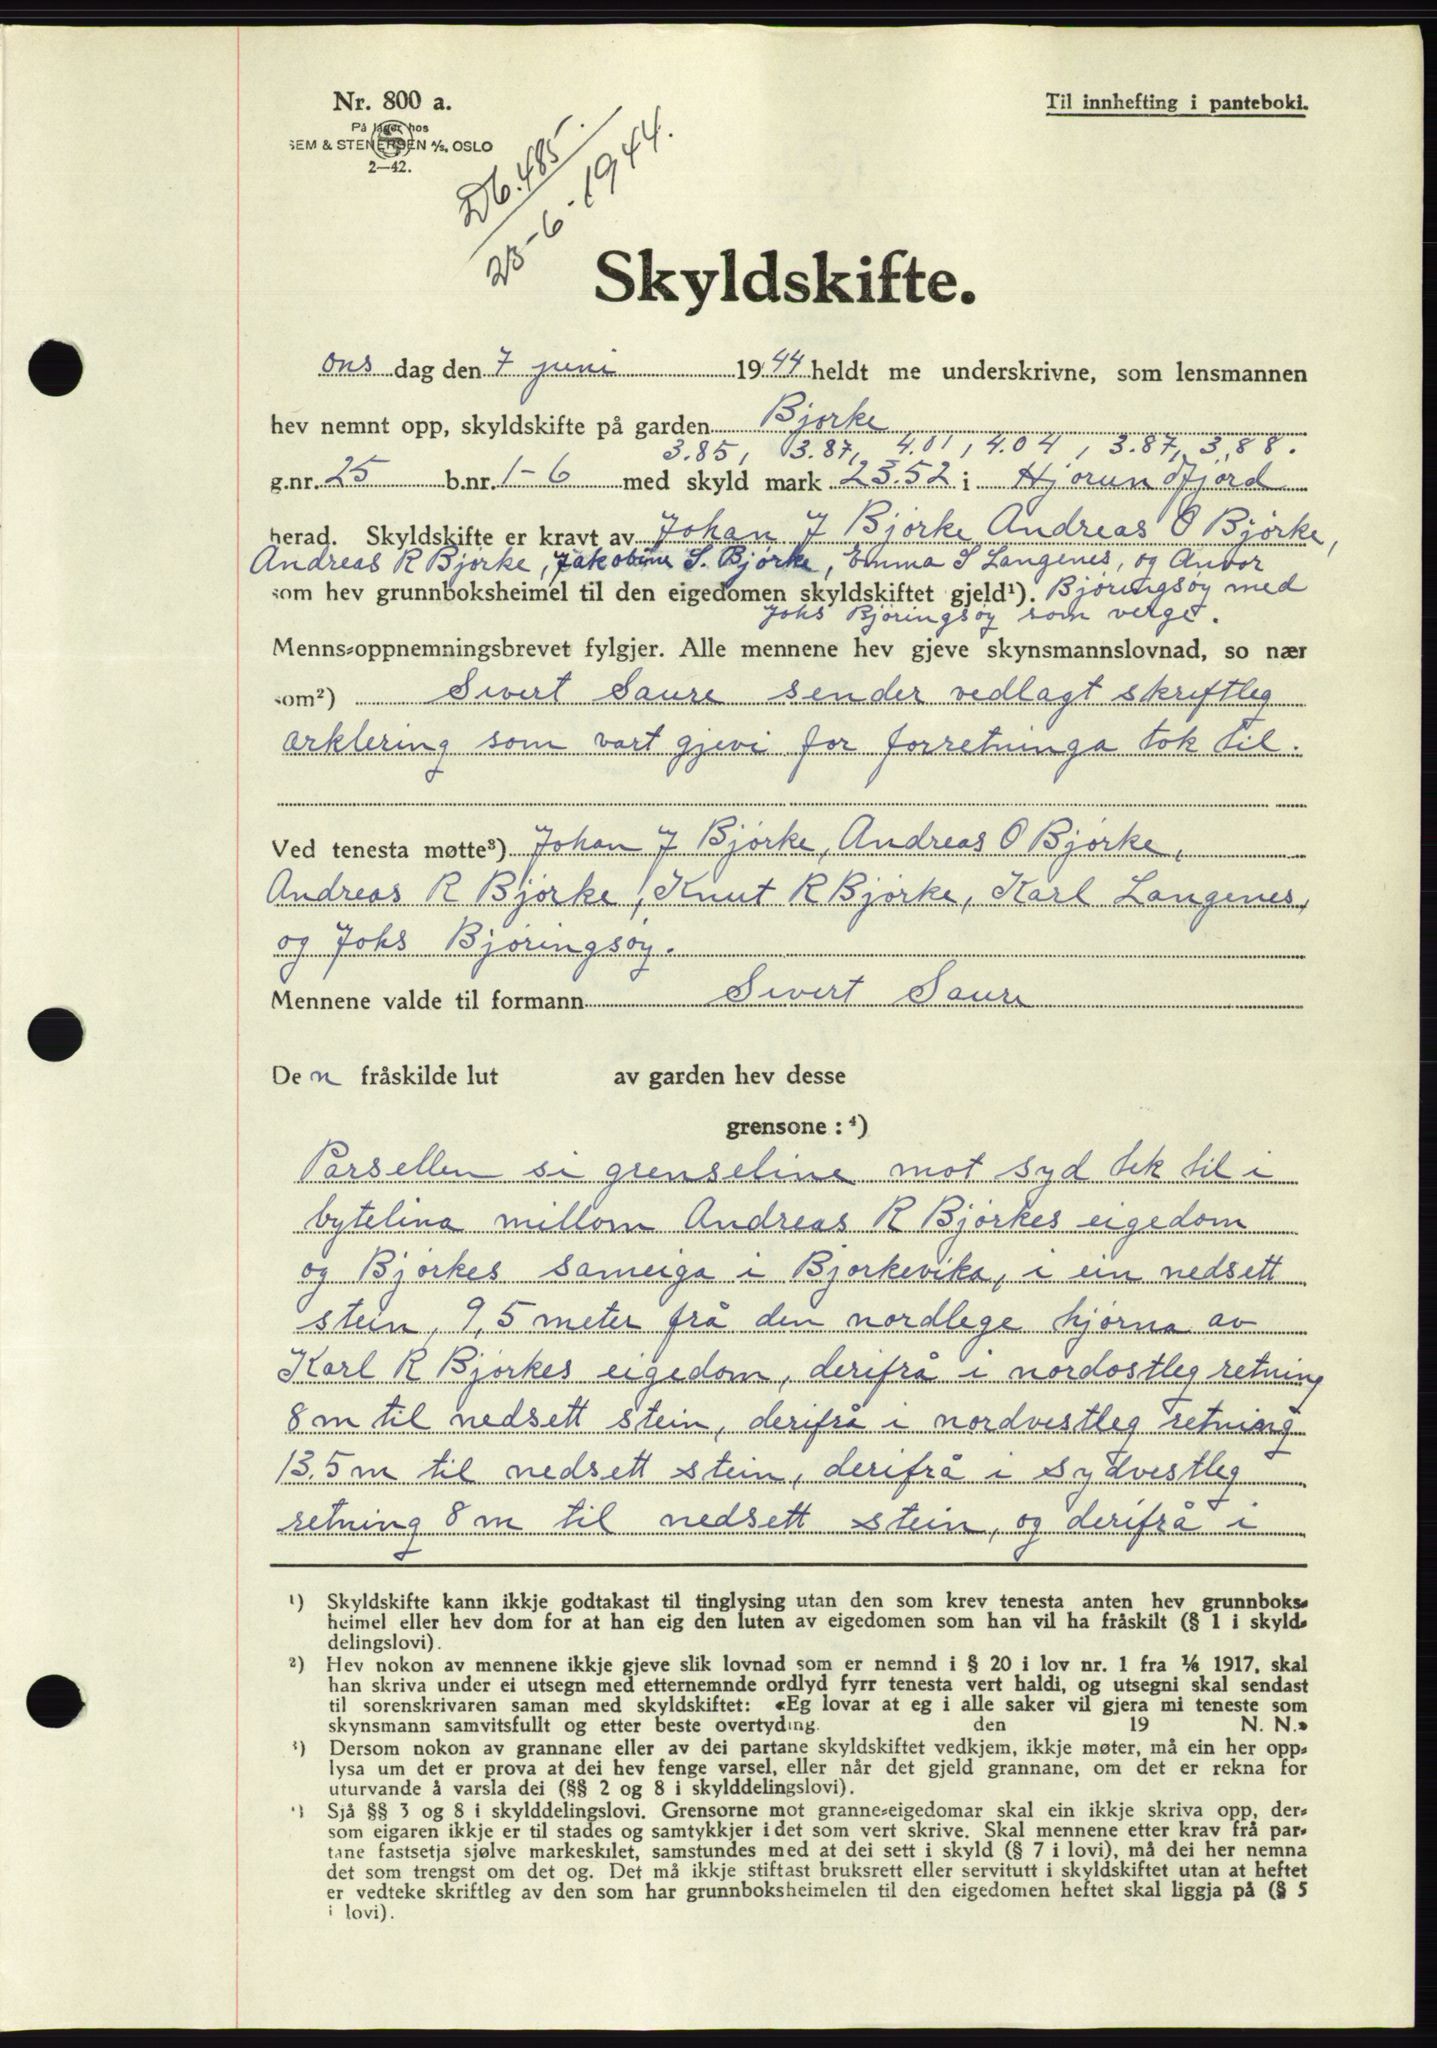 Nr. 800 a.
På lager hos
SEM & STENERSEN A/S, OSLO
2—42.
Til innhefting i panteboki.
Db. 485.
23-6-1944.
Skyldskifte.
ons dag den 7 juni 1944 heldt me underskrivne, som lensmannen
hev nemnt opp, skyldskifte på garden Bjørke
3.85, 3.87, 4.01, 4.04, 3.87, 3,88.
g.nr. 25 b.nr. 1-6 med skyld mark 23.52 i Hjørundfjord
herad. Skyldskifte er kravt av Johan J Bjørke Andreas O Bjørke,
Andreas R Bjørke, Jakobine S. Bjørke, Emma S Langenes, og Anvor
som hev grunnboksheimel til den eigedomen skyldskiftet gjeld¹). Bjøringsøy med
Johs Bjøringsøy som verge.
Menns-oppnemningsbrevet fylgjer. Alle mennene hev gjeve skynsmannslovnad, so nær
som²) Sivert Saure sender vedlagt skriftleg
ærklering som vart gjevi for forretninga tok til.
Ved tenesta møtte³) Johan J Bjørke, Andreas O Bjørke,
Andreas R Bjørke, Knut R Bjørke, Karl Langenes,
og Johs Bjøringsøy.
Mennene valde til formann Sivert Saure
Den fråskilde lut av garden hev desse
grensone : ⁴)
Parsellen si grenseline mot syd tek til i
bytelina millom Andreas R Bjørkes eigedom
og Bjørkes sameiga i Bjørkevika, i ein nedsett
stein, 9,5 meter frå den nordlege hjørna av
Karl R Bjørkes eigedom, derifrå i nordostleg retning
8 m til nedsett stein, derifrå i nordvestleg retning
13.5 m til nedsett stein, derifrå i sydvestleg
retning 8 m til nedsett stein, og derifrå i
¹) Skyldskifte kann ikkje godtakast til tinglysing utan den som krev tenesta anten hev grunnboks-
heimel eller hev dom for at han eig den luten av eigedomen som han vil ha fråskilt (§ 1 i skyld-
delingslovi).
²) Hev nokon av mennene ikkje gjeve slik lovnad som er nemnd i § 20 i lov nr. 1 fra 1/6 1917, skal
han skriva under ei utsegn med etternemnde ordlyd fyrr tenesta vert haldi, og utsegni skal sendast
til sorenskrivaren saman med skyldskiftet: «Eg lovar at eg i alle saker vil gjera mi teneste som
skynsmann samvitsfullt og etter beste overtyding. den 19 N. N.»
³) Dersom nokon av grannane eller av dei partane skyldskiftet vedkjem, ikkje møter, må ein her opp-
lysa um det er prova at dei hev fenge varsel, eller når det gjeld grannane, om det er rekna for
uturvande å varsla dei (§§ 2 og 8 i skylddelingslovi).
⁴) Sjå §§ 3 og 8 i skylddelingslovi. Grensorne mot granne-eigedomar skal ein ikkje skriva opp, der-
som eigaren ikkje er til stades og samtykkjer i det som vert skrive. Skal mennene etter krav frå par-
tane fastsetja sjølve markeskilet, samstundes med at dei sett i skyld (§ 7 i lovi), må dei her nemna
det som trengst om det og. Det må ikkje stiftast bruksrett eller servitutt i skyldskiftet utan at heftet
er vedteke skriftleg av den som har grunnboksheimelen til den eigedomen heftet skal liggja på (§ 5
i lovi).